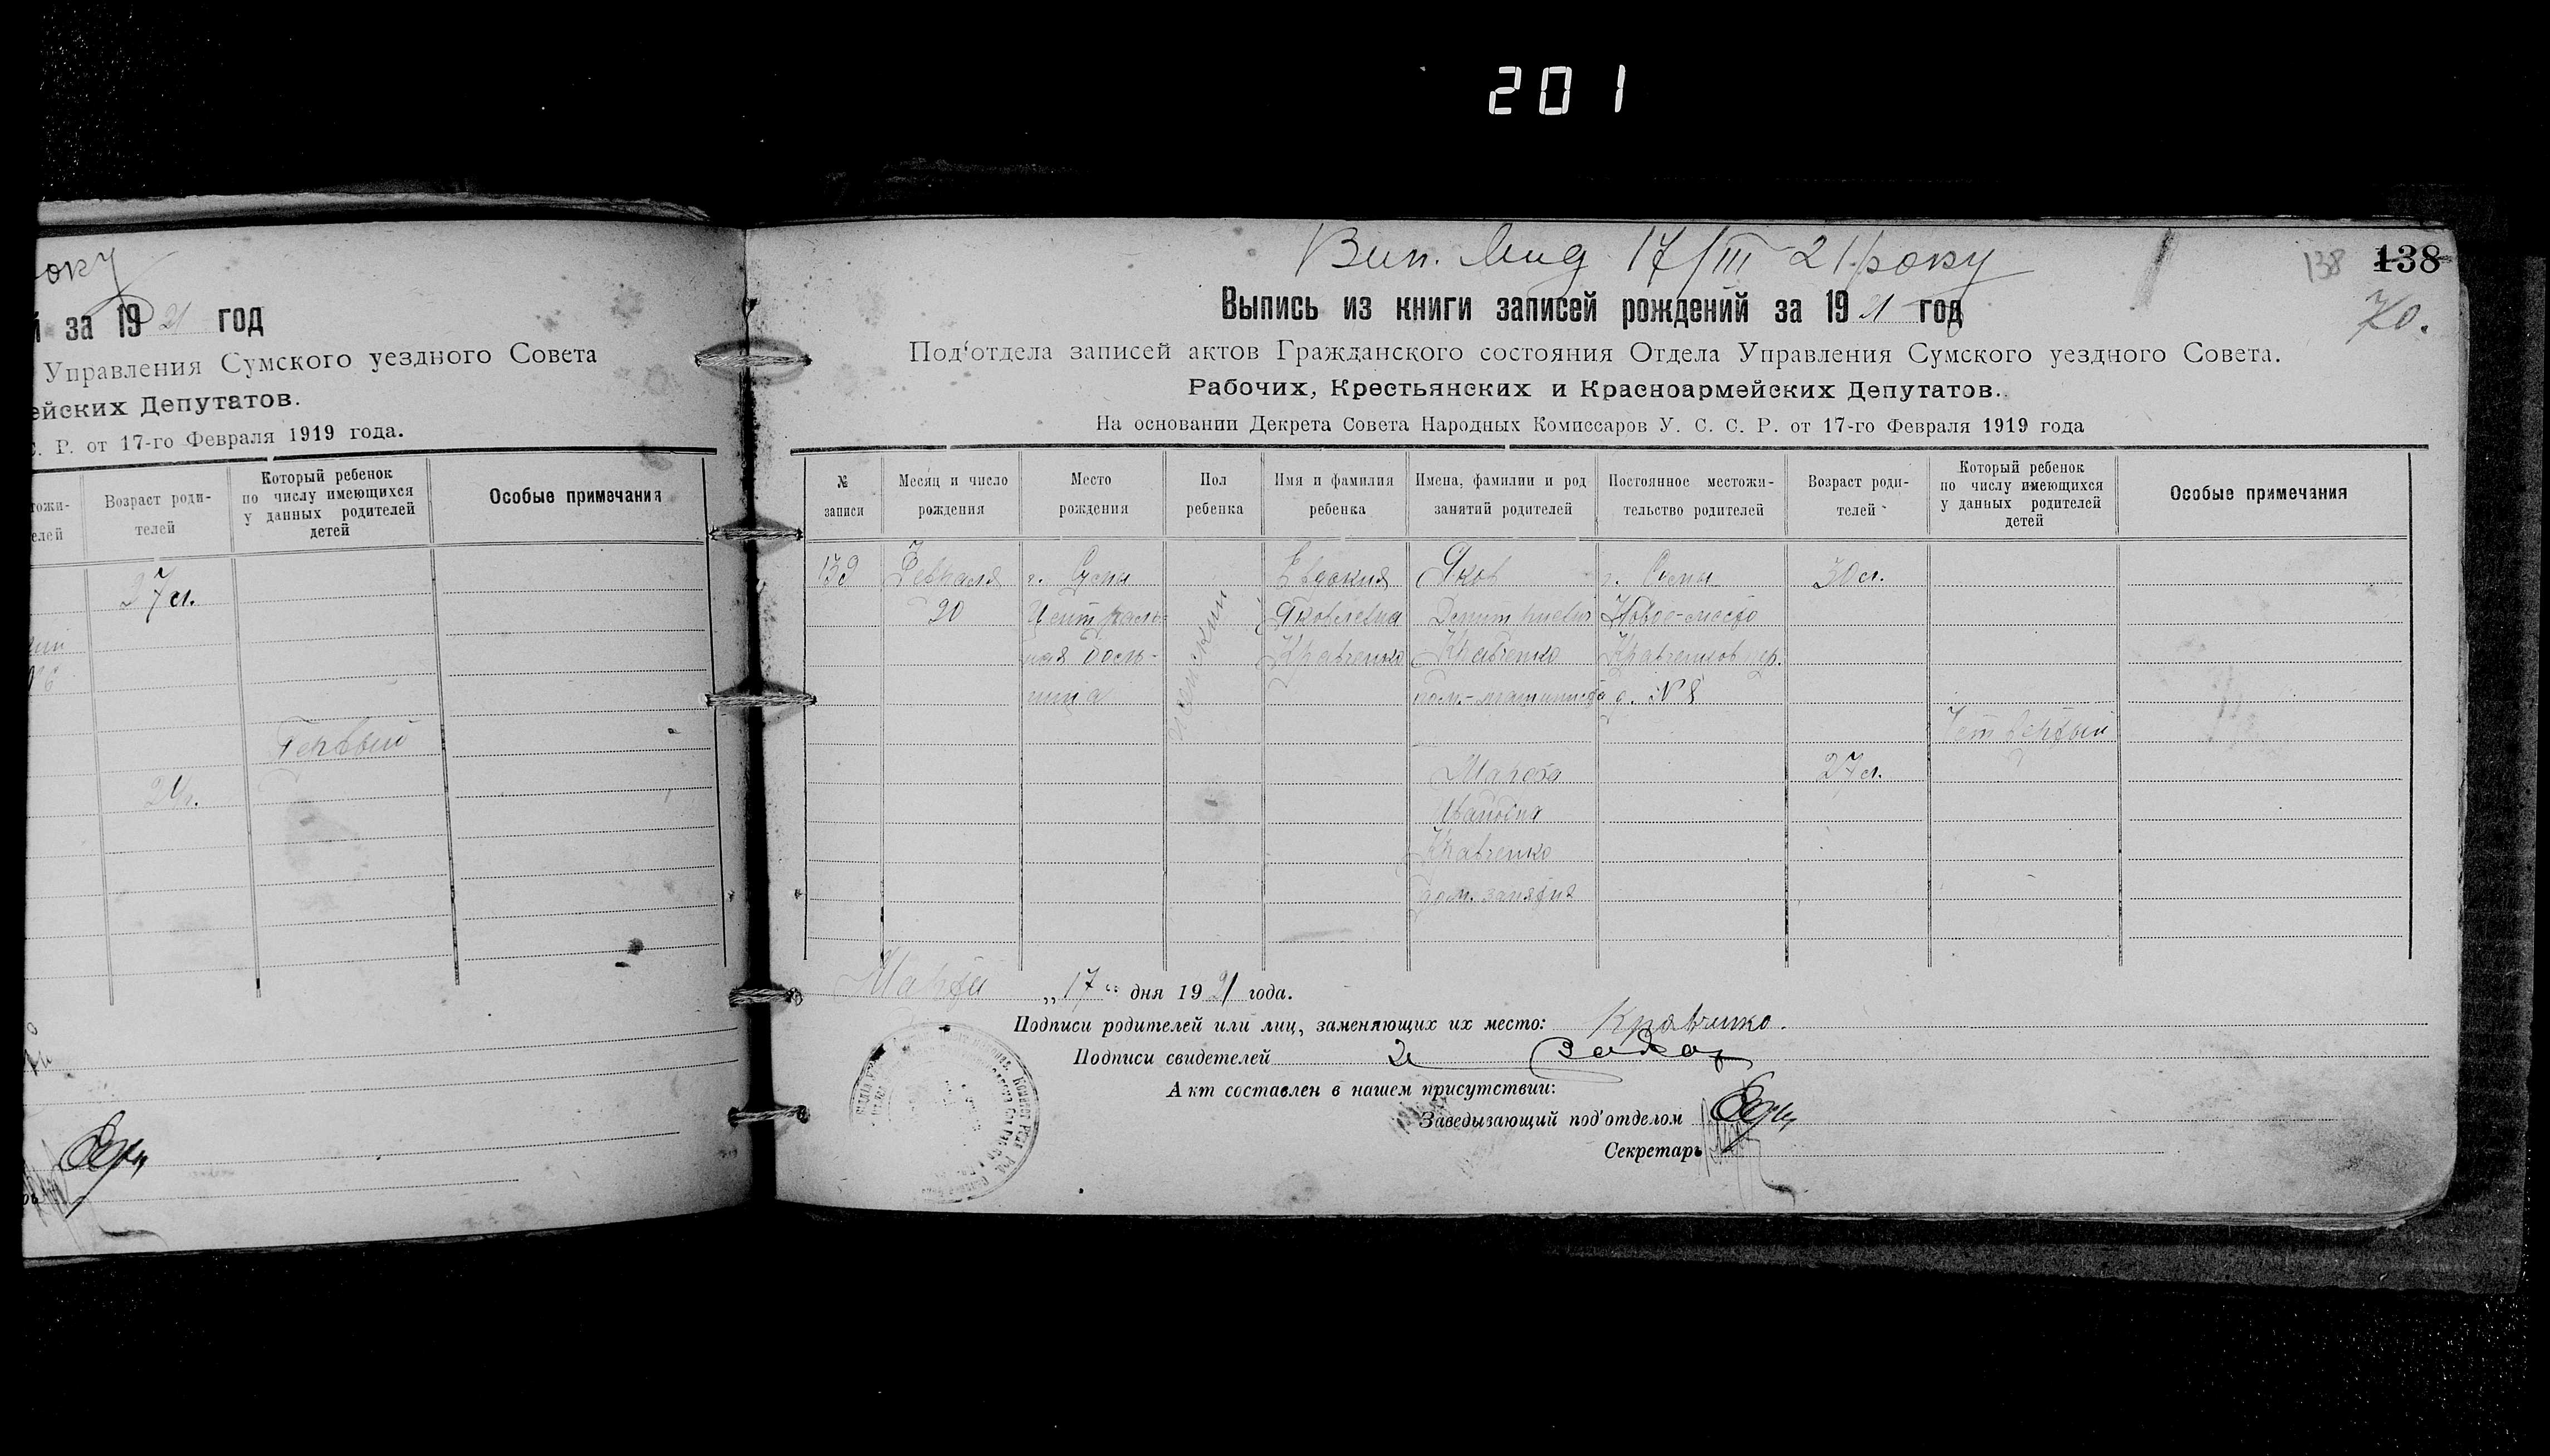 201
оку
й за 1921 год
Управления Сумского уездного Совета
ейских Депутатов.
С. Р. от 17-го Февраля 1919 года.
Возраст роди-
телей
Который ребенок
по числу имеющихся
у данных родителей
детей
Особые примечания
27 л.
Первый
Вип. 17/III 21 року
138
138
Выпись из книги записей рождений за 1921 год
Под'отдела записей актов Гражданского состояния Отдела Управления Сумского уездного Совета.
Рабочих, Крестьянских и Красноармейских Депутатов.
На основании Декрета Совета Народных Комиссаров У. С. С. Р. от 17-го Февраля 1919 года
№
записи
Месяц и число
рождения
Место
рождения
Пол
ребенка
Имя и фамилия
ребенка
Имена, фамилии и род
занятий родителей
Постоянное местожи-
тельство родителей
Возраст роди-
телей
Который ребенок
по числу имеющихся
у данных родителей
детей
Особые примечания
139
Февраля
20
г. Сумы
Централь-
ная боль-
ница
женский
Евдокия
Яковлевна
Кравченко
Яков
Дмитриевич
Кравченко
пом.-машиниста
Марфа
Ивановна
Кравченко
дом. занятия
г. Сумы
Новое-место
Кравченков пер.
д. № 8
30 л.
27 л.
Четвертый
Марта „17“ дня 1921 года.
Подписи родителей или лиц, заменяющих их место: Кравченко.
Подписи свидетелей
Акт составлен в нашем присутствии:
Заведывающий под'отделом
Секретарь